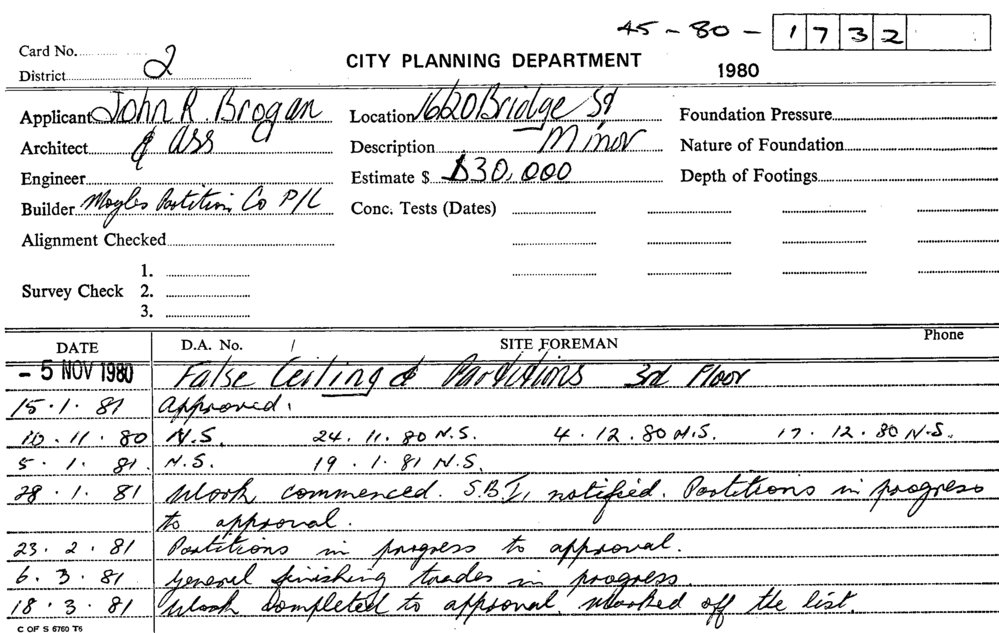 45-80-1732
Card No.
District 2
CITY PLANNING DEPARTMENT
1980
Applicant John R. Brogan
Location 16/20 Bridge St
Foundation Pressure
Architect & Ass
Description Minor
Nature of Foundation
Engineer
Estimate $ $30,000
Depth of Footings
Builder Moyles Partition Co P/L
Conc. Tests (Dates)
Alignment Checked
1.
Survey Check 2.
3.
DATE D.A. No. SITE FOREMAN Phone
- 5 NOV 1980 False Ceiling & Partitions 3rd Floor
15.1.81 Approved.
11.80 N.S. 24.11.80 N.S. 4.12.80 N.S. 17.12.80 N.S.
5.1.81. N.S. 19.1.81 N.S.
28.1.81 Work commenced. S.B.I. notified. Partitions in progress
to approval.
23.2.81 Partitions in progress to approval.
6.3.81 General finishing trades in progress.
18.3.81 Work completed to approval. marked off the list.
C OF S 6760 T6